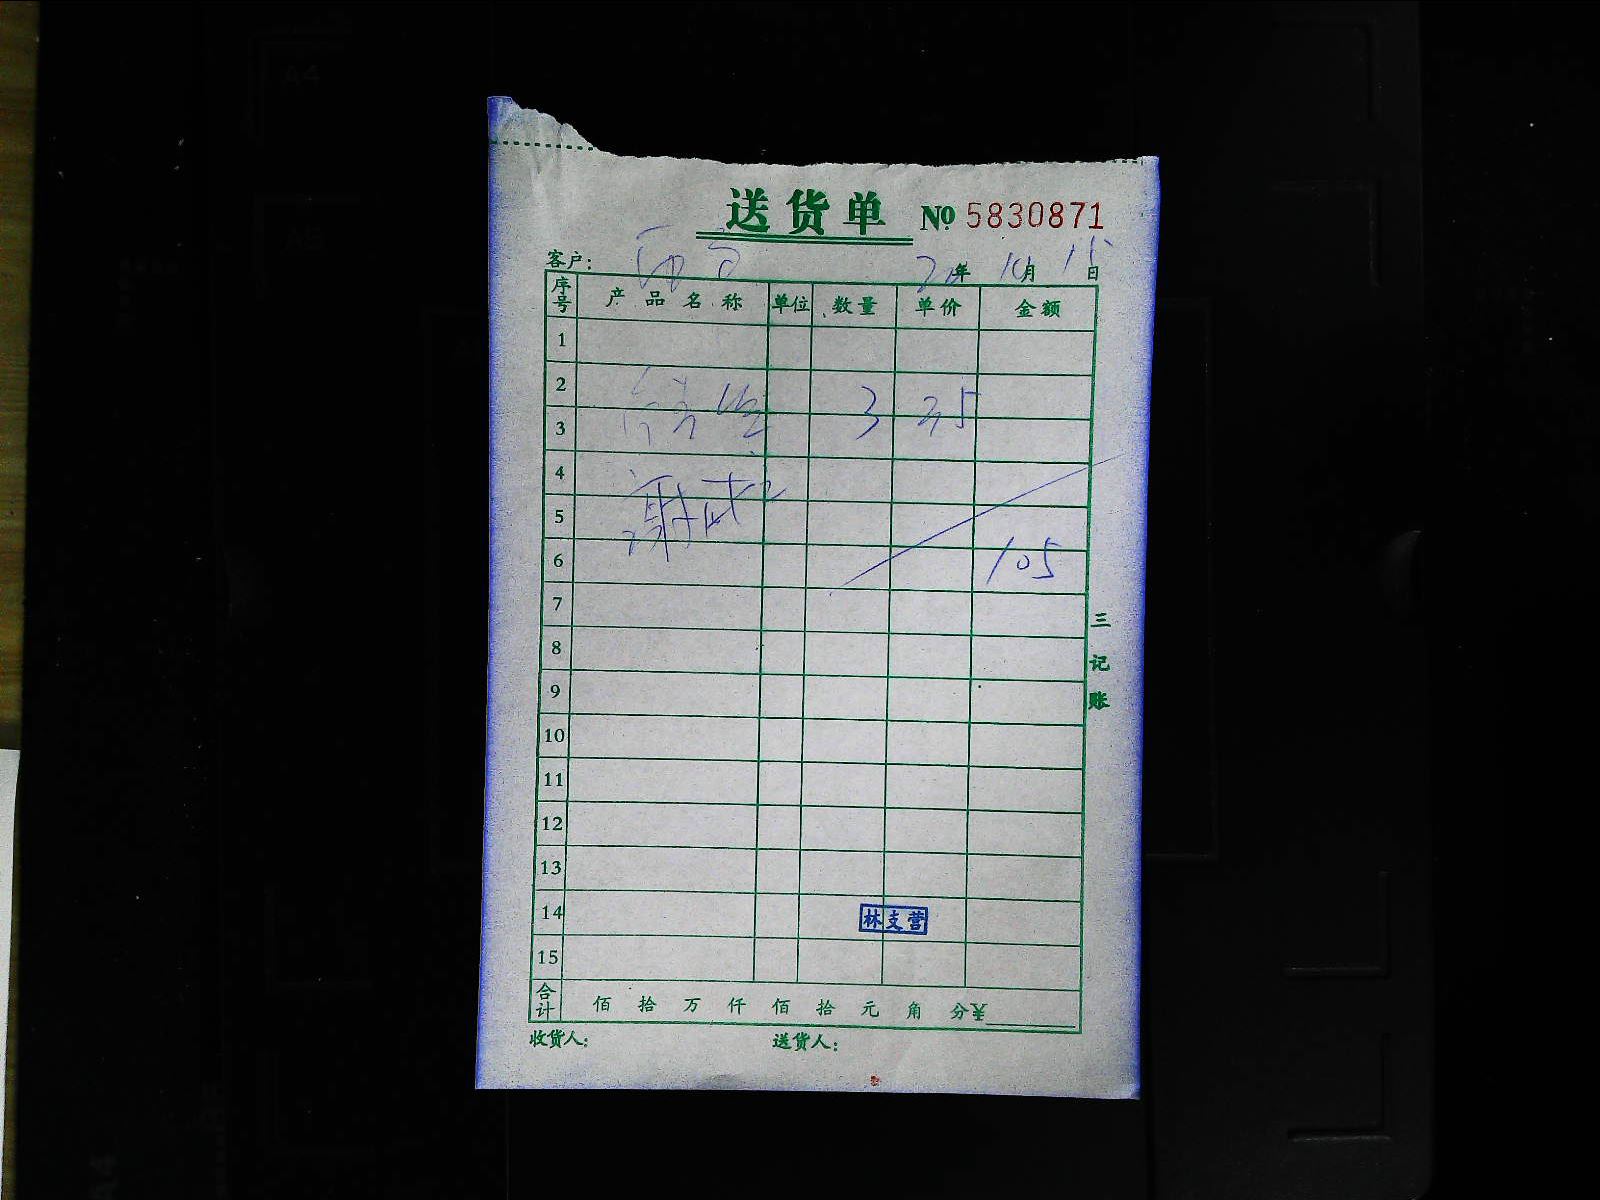 送货单 № 5830871
客户： 年 10月 15日
序号 产品名称 单位 数量 单价 金额
1
2
3 35
3
4
谢武
5
105
6
7
三记账
8
9
10
11
12
13
14 林支营
15
合计 佰 拾 万 仟 佰 拾 元 角 分¥
收货人： 送货人：